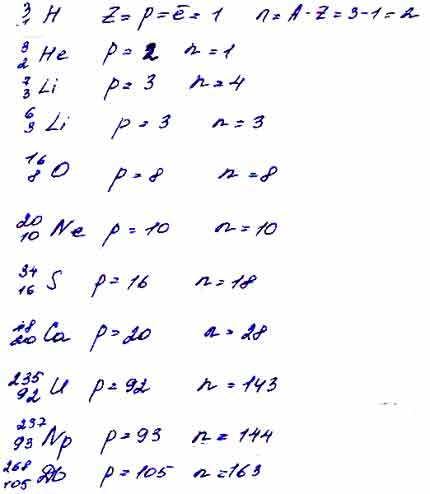 ³₁H Z = p = ē = 1 n = A - Z = 3 - 1 = 2
³₂He p = 2 n = 1
⁷₃Li p = 3 n = 4
⁶₃Li p = 3 n = 3
¹⁶₈O p = 8 n = 8
²⁰₁₀Ne p = 10 n = 10
³⁴₁₆S p = 16 n = 18
⁴⁸₂₀Ca p = 20 n = 28
²³⁵₉₂U p = 92 n = 143
²³⁷₉₃Np p = 93 n = 144
²⁶⁸₁₀₅Db p = 105 n = 163